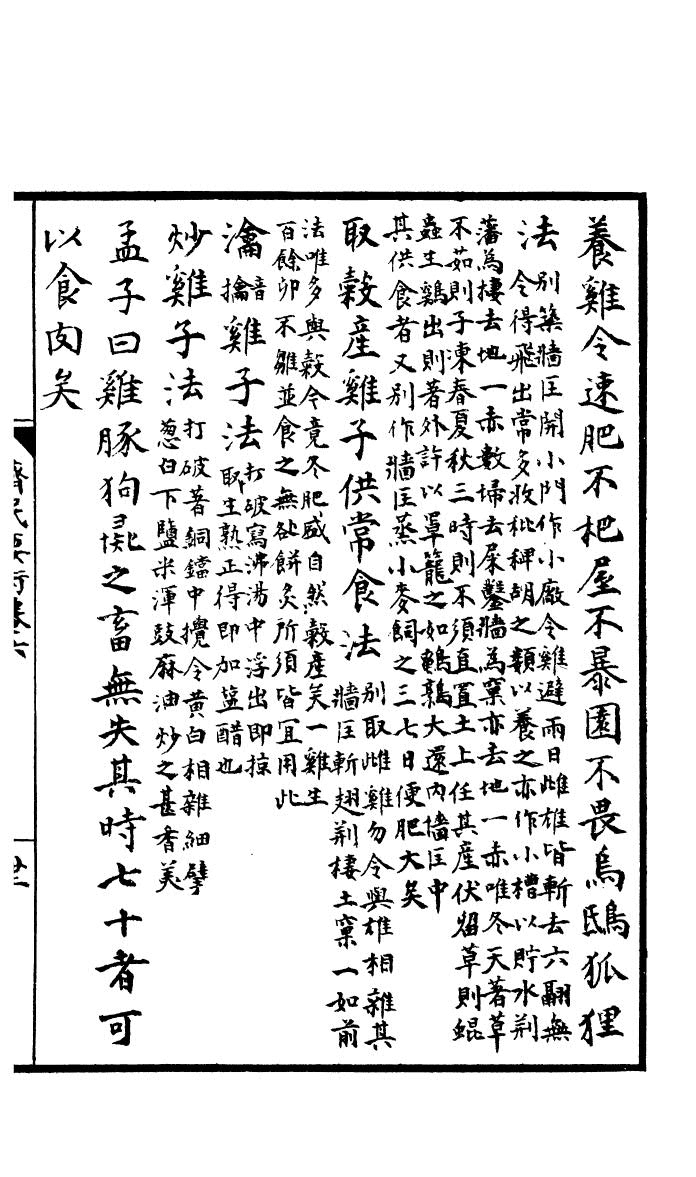 養雞令速肥不杷屋不暴園不畏烏鴟狐狸
法
別築牆匡開小門作小廠令雞避雨日雌雄皆斬去六翮無
令得飛出常多收粃稗胡之類以養之亦作小槽以貯水荆
藩為棲去地一赤數埽去屎鑿牆為窠亦去地一赤唯冬天著草
不茹則子凍春夏秋三時則不須直置土上任其產伏留草則䖵
蟲生鷄出則著外許以罩籠之如鵪鶉大還內牆匡中
其供食者又別作牆匡蒸小麥飼之三七日便肥大矣
取穀產雞子供常食法
別取雌雞勿令與雄相雜其
牆匡斬翅荆棲土窠一如前
法唯多與穀令竟冬肥盛自然穀產矣一雞生
百餘卵不雛並食之無咎餅炙所須皆宜用此
瀹
音
擒
雞子法
打破寫沸湯中浮出即掠
取生熟正得即加鹽醋也
炒雞子法
打破著銅鐺中攪令黃白相雜細擘
葱白下鹽米渾豉麻油炒之甚香美
孟子曰雞豚狗彘之畜無失其時七十者可
以食肉矣
齊民要術卷六